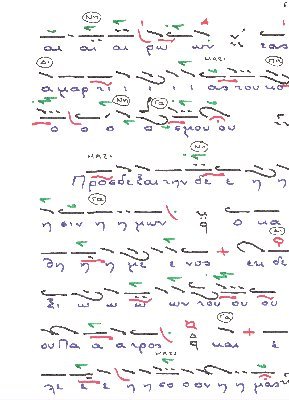 αι αι αι ρω ων τας
α μαρτι ι ι ι ι ας του κο
ο ο ο ο ο σμου ου
Προσδεξαι την δε ε η η
η σιν η η μων ο κα
θη η η με ε νος εκ δε
ξι ω ω ω ων του ου ου
ου Πα α α τρος και ε
λε ε ε η η σο ο ον η η μας